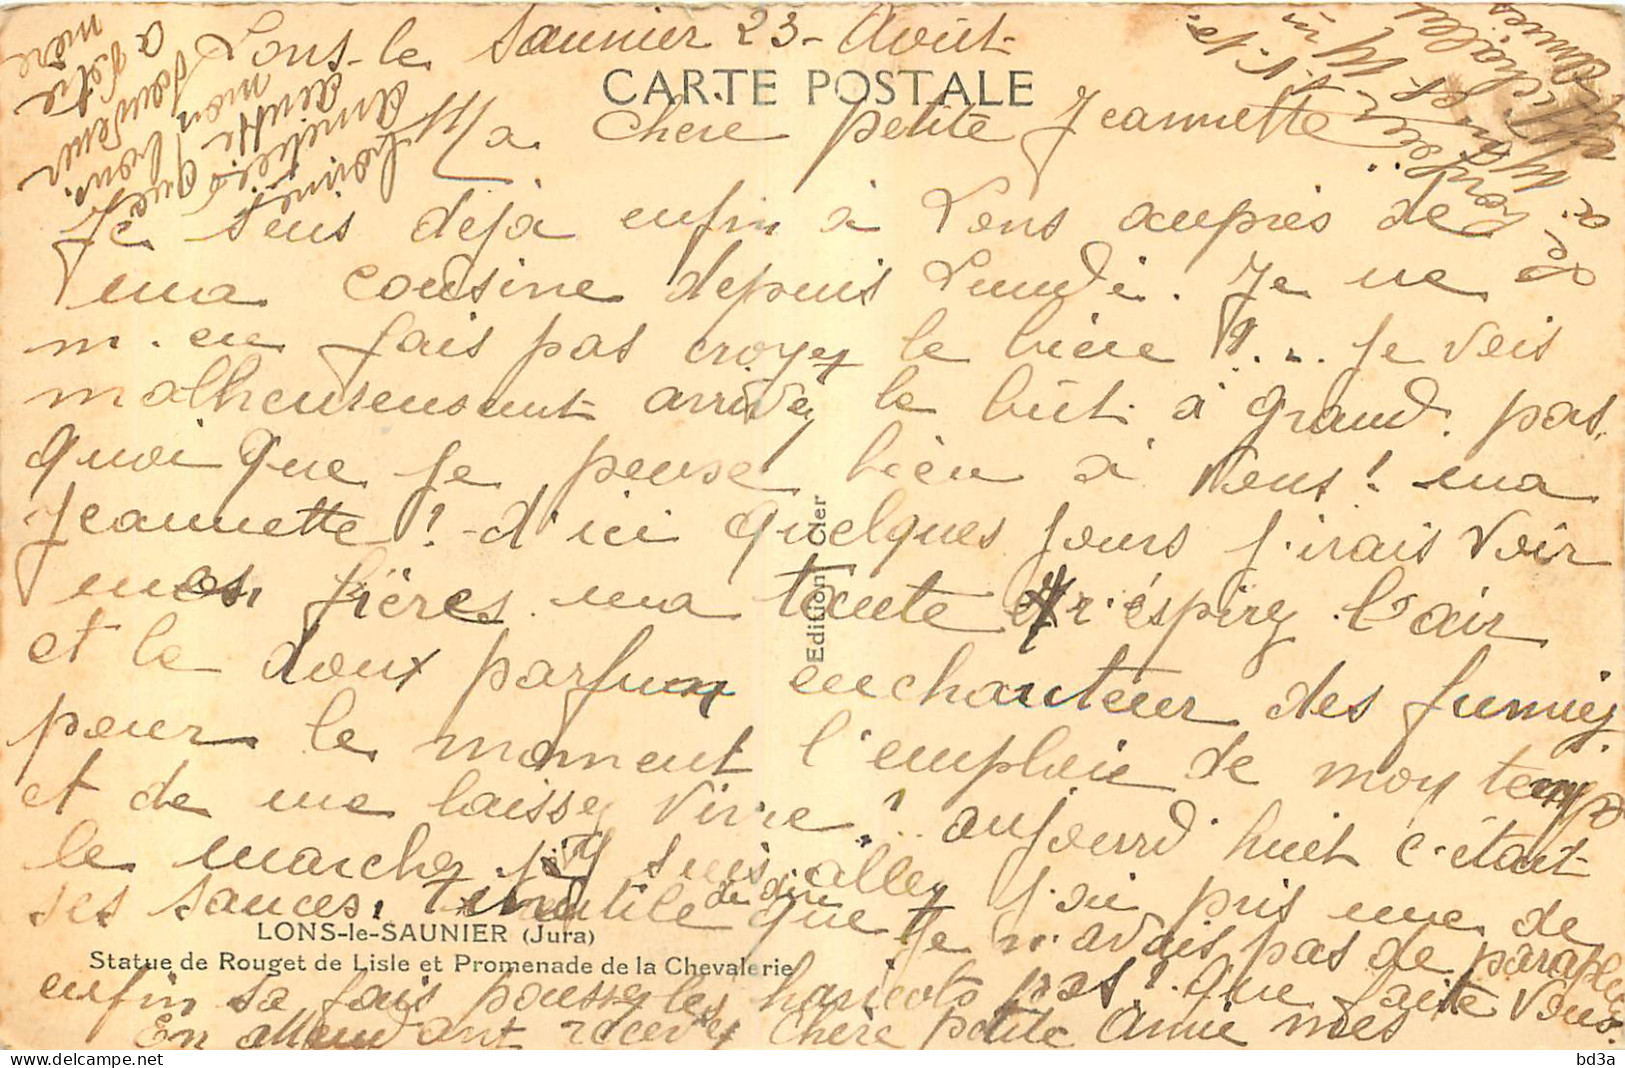 Lons-le Saunier 23- Août-
CARTE POSTALE
Ma chere petite Jeannette
Je suis déjà enfin à Lons auprès de
ma cousine depuis Lundi. Je ne
m'en fais pas croyez le bien !... Je vois
malheureusement arrivez le bût à grand pas
quoi que je pense bien à Vous! ma
Jeannette! -d'ici quelques jours j'irais voir
mes frères ma tante respirez l'air
et le doux parfum enchanteur des fumiez
pour le moment l'emploie de moy temps
et de me laissez vivre! aujourd'huit c'était
le marchez j'y suis allez j'ai pris une de
ses sauces. Inutile de dire que Je n'avais pas de parapluie
enfin sa fais poussez les haricots pas! Que faite Vous.
En attendant recevez chère petite Amie mes
amitiés
mon
a votre
mère
Edition Cler
LONS-le-SAUNIER (Jura)
Statue de Rouget de Lisle et Promenade de la Chevalerie
bd3a
delcampe.net